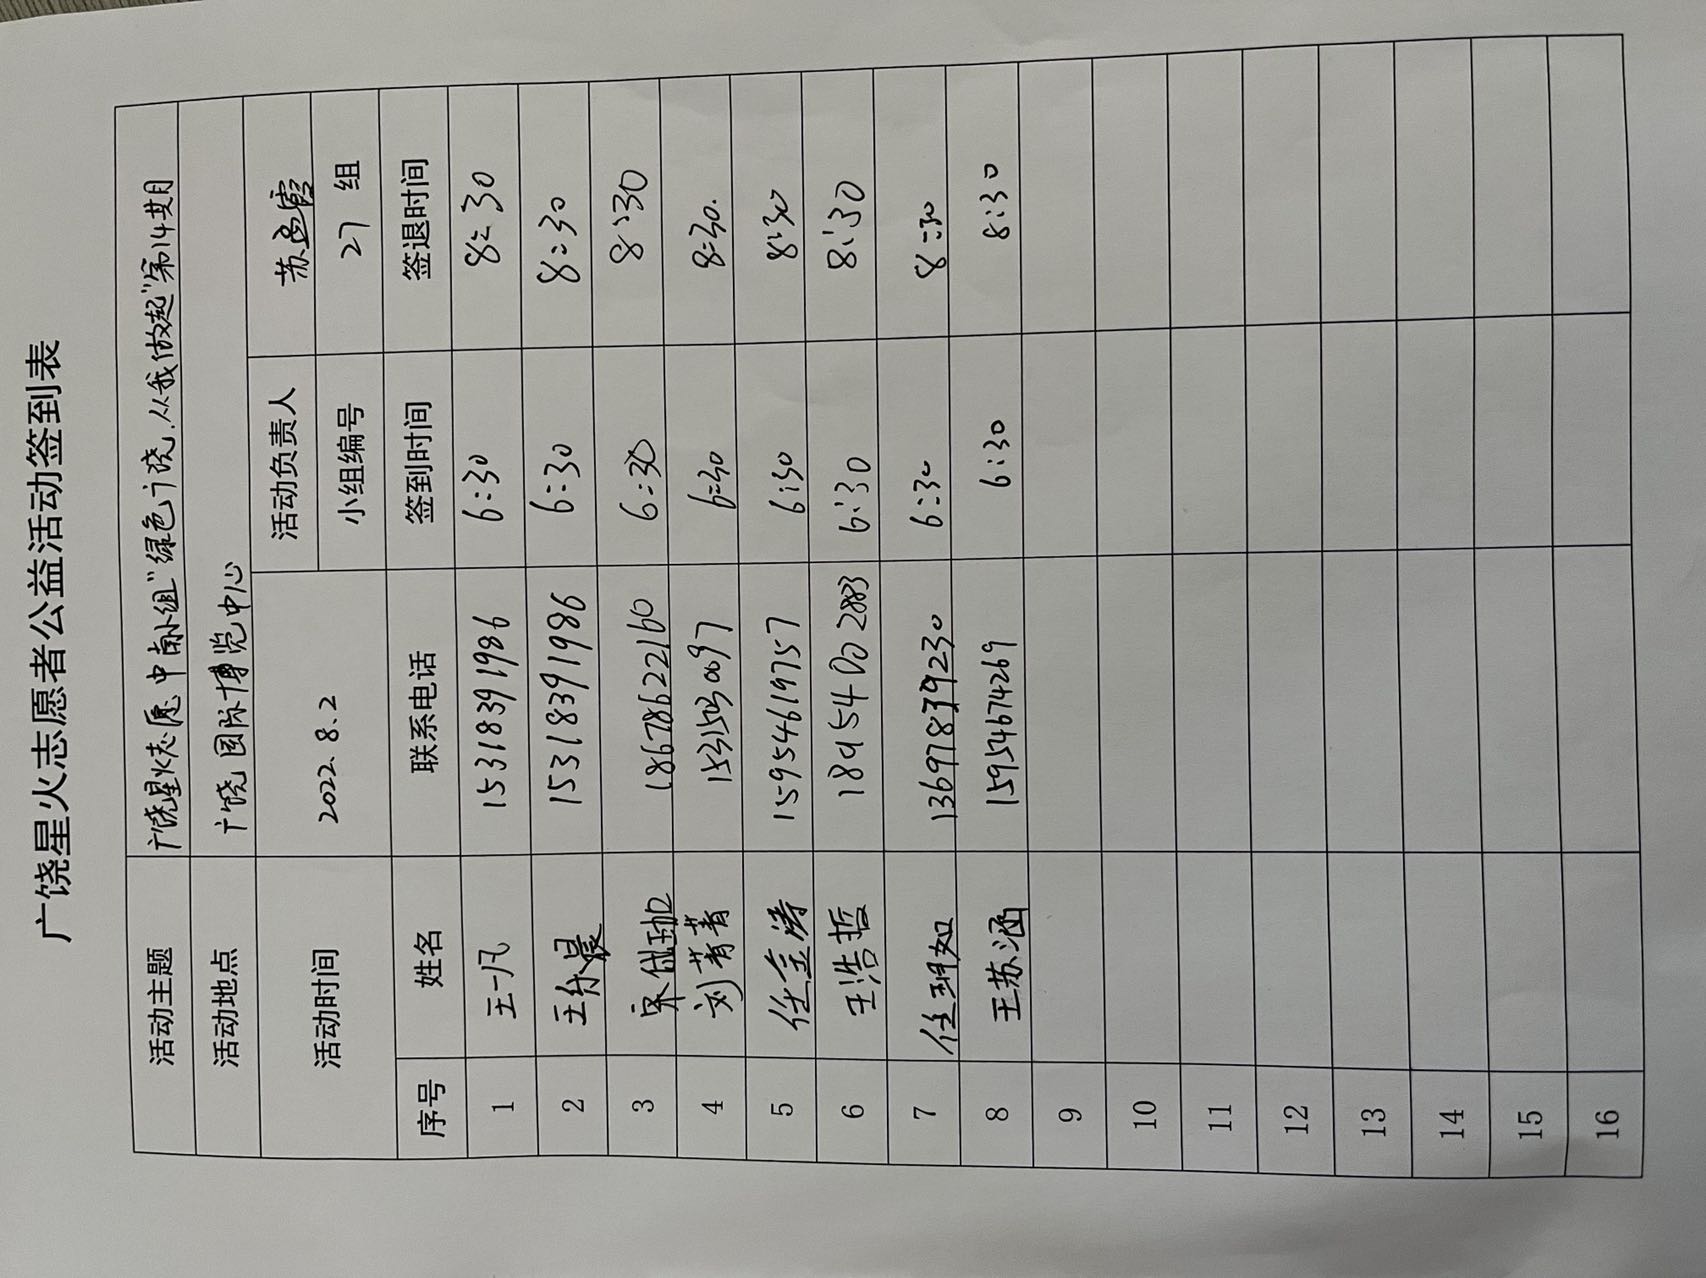 广饶星火志愿者公益活动签到表
活动主题 广饶星火志愿中南小组"绿色广饶,从我做起"第14期
活动地点 广饶国际博览中心
活动时间 2022.8.2 活动负责人 苏孟霞
小组编号 27 组
序号 姓名 联系电话 签到时间 签退时间
1 王一凡 15318391986 6:30 8:30
2 王乐晨 15318391986 6:30 8:30
3 18678622160 6:30 8:30
4 刘菁菁 6:30 8:30.
5 任金涛 15954619757 6:30 8:30
6 王浩哲 18954002883 6:30 8:30
7 13697839230 6:30 8:30
8 王苏涵 15954674269 6:30 8:30
9
10
11
12
13
14
15
16